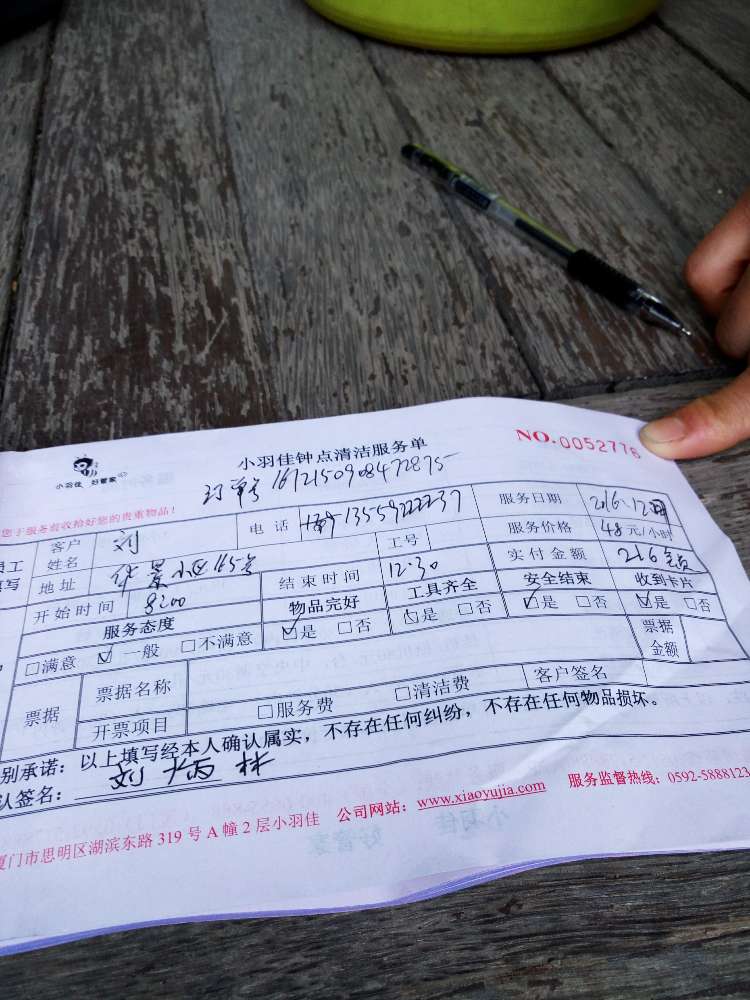 小羽佳 好管家
小羽佳钟点清洁服务单
NO.0052776
订单号1612150908472875
您于服务前收拾好您的贵重物品！
客户姓名 刘 电话 13559222237 服务日期
工号 服务价格 48元/小时
地址 华景小区165号 实付金额 216
开始时间 8:00 结束时间 12:30
服务态度 物品完好 工具齐全 安全结束 收到卡片
□满意 ☑一般 □不满意 ☑是 □否 ☑是 □否 ☑是 □否 ☑是 □否
票据 票据名称 票据金额
开票项目 □服务费 □清洁费 客户签名
别承诺：以上填写经本人确认属实，不存在任何纠纷，不存在任何物品损坏。
认签名：刘炳林
厦门市思明区湖滨东路319号A幢2层小羽佳 公司网站：www.xiaoyujia.com 服务监督热线：0592-5888123